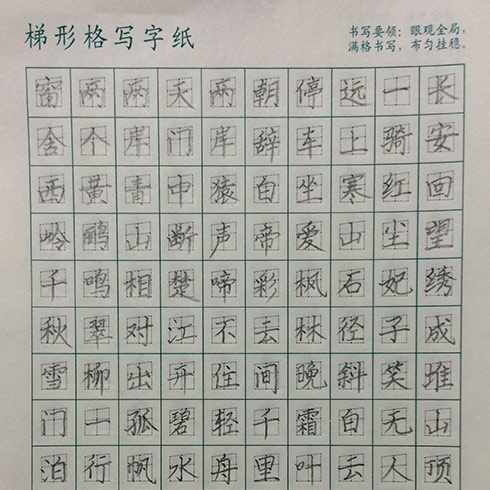 梯形格写字纸
书写要领：眼观全局，
满格书写，布匀挂稳。
长安回望绣成堆山顶
一骑红尘妃子笑无人
远上寒山石径斜白云
停车坐爱枫林晚霜叶
朝辞白帝彩云间千里
两岸猿声啼不住轻舟
天门中断楚江开碧水
两岸青山相对出孤帆
两个黄鹂鸣翠柳一行
窗含西岭千秋雪门泊